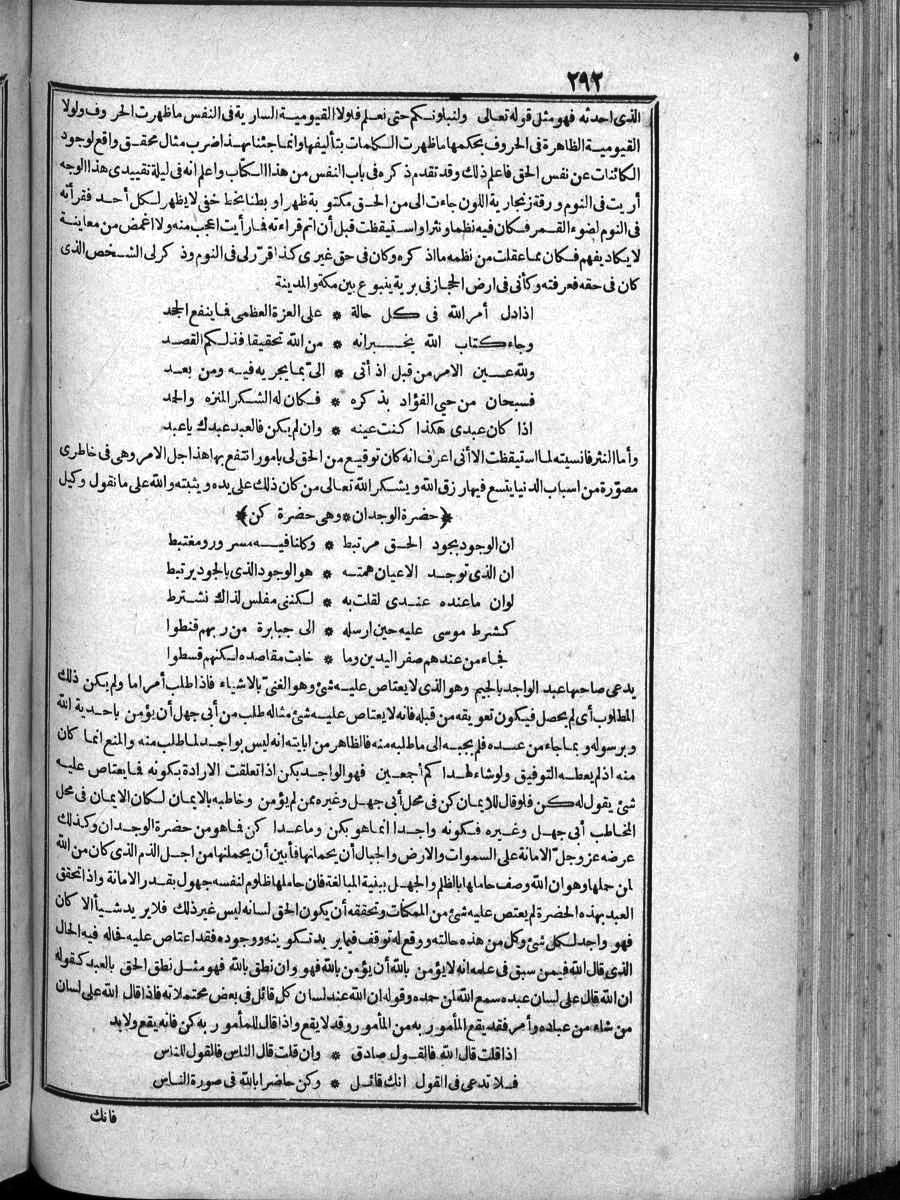 ٢٩٢
الذى احدثه فهو مثل قوله تعالى ولنبلونكم حتى نعلم فلولا القيومية السارية فى النفس ما ظهرت الحروف ولولا
القيومية الظاهرة فى الحروف بحكمها ما ظهرت الكلمات بتأليفها وانما جئنا بهذا ضرب مثال محقق واقع لوجود
الكائنات عن نفس الحق فاعلم ذلك وقد تقدم ذكره فى باب النفس من هذا الكتاب واعلم انه فى ليلة تقييدى هذا الوجه
أريت فى النوم ورقة زنجارية اللون جاءت الى من الحق مكتوبة ظهرا وبطنا بخط خفى لا يظهر لكل أحد فقرأته
فى النوم لضوء القمر فكان فيه نظما ونثرا واستيقظت قبل أن اتم قراءته فما رأيت اعجب منه ولا اغمض من معاينة
لا يكاد يفهم فكان مما عقلت من نظمه ما اذكره وكان فى حق غيرى كذا قرّر لى فى النوم وذكر لى الشخص الذى
كان فى حقه فعرفته وكأنى فى ارض الحجاز فى برية ينبوع بين مكة والمدينة
اذا دل أمر الله فى كل حالة * على العزة العظمى فما ينفع الجحد
وجاء كتاب الله يخبر انه * من الله تحقيقا فذلكم القصد
ولله عين الامر من قبل اذ أتى * الىّ بما يجريه فيه ومن بعد
فسبحان من حيى الفؤاد بذكره * فكان له الشكر المنزه والحمد
اذا كان عبدى هكذا كنت عينه * وان لم يكن فالعبد عبدك يا عبد
وأما النثر فانسيته لما استيقظت الا أنى اعرف انه كان توقيع من الحق لى بامور انتفع بها هذا جل الامر وهى فى خاطرى
مصوّرة من اسباب الدنيا يتسع فيها رزق الله ويشكر الله تعالى من كان ذلك على يده ويثبته والله على ما نقول وكيل
﴿حضرة الوجدان * وهى حضرة كن﴾
ان الوجود بجود الحق مرتبط * وكلنا فيه مسرور ومغتبط
ان الذى توجد الاعيان همته * هو الوجود الذى بالجود يرتبط
لو ان ما عنده عندى لقلت به * لكننى مفلس لذاك نشترط
كشرط موسى عليه حين ارسله * الى جبابرة من ربهم قنطوا
فجاء من عندهم صفر اليدين وما * خابت مقاصده لكنهم قسطوا
يدعى صاحبها عبد الواجد بالجيم وهو الذى لا يعتاص عليه شئ وهو الغنىّ بالاشياء فاذا طلب أمرا ما ولم يكن ذلك
المطلوب أى لم يحصل فيكون تعويقه من قبله فانه لا يعتاص عليه شئ مثاله طلب من أبى جهل أن يؤمن باحدية الله
وبرسوله وبما جاء من عنده فلم يجبه الى ما طلبه منه فالظاهر من ابايته انه ليس بواجد لما طلب منه والمنع انما كان
منه اذ لم يعطه التوفيق ولو شاء لهداكم أجمعين فهو الواجد بكن اذا تعلقت الارادة بكونه فما يعتاص عليه
شئ يقول له كن فلو قال للايمان كن فى محل أبى جهل وغيره ممن لم يؤمن وخاطبه بالايمان لكان الايمان فى محل
المخاطب أبى جهل وغيره فكونه واجدا انما هو بكن وما عدا كن فما هو من حضرة الوجدان وكذلك
عرضه عز وجلّ الامانة على السموات والارض والجبال أن يحملنها فأبين أن يحملنها من اجل الذم الذى كان من الله
لمن حملها وهو ان الله وصف حاملها بالظلم والجهل ببنية المبالغة فان حاملها ظلوم لنفسه جهول بقدر الامانة واذا تحقق
العبد بهذه الحضرة لم يعتص عليه شئ من الممكنات وتحققه أن يكون الحق لسانه ليس غير ذلك فلا يريد شيأ الا كان
فهو واجد لكل شئ وكل من هذه حالته ووقع له توقف فيما يريد تكوينه ووجوده فقد اعتاص عليه فحاله فيه الحال
الذى قال الله فيمن سبق فى علمه انه لا يؤمن بالله أن يؤمن بالله فهو وان نطق بالله فهو مثل نطق الحق بالعبد كقوله
ان الله قال على لسان عبده سمع الله لمن حمده وقوله ان الله عند لسان كل قائل فى بعض محتملاته فاذا قال الله على لسان
من شاء من عباده وأمر فقد يقع المأمور به من المأمور وقد لا يقع واذا قال للمأمور به كن فانه يقع ولا بد
اذا قلت قال الله فالقول صادق * وان قلت قال الناس فالقول للناس
فلا تدعى فى القول انك قائل * وكن حاضرا بالله فى صورة الناس
فانك